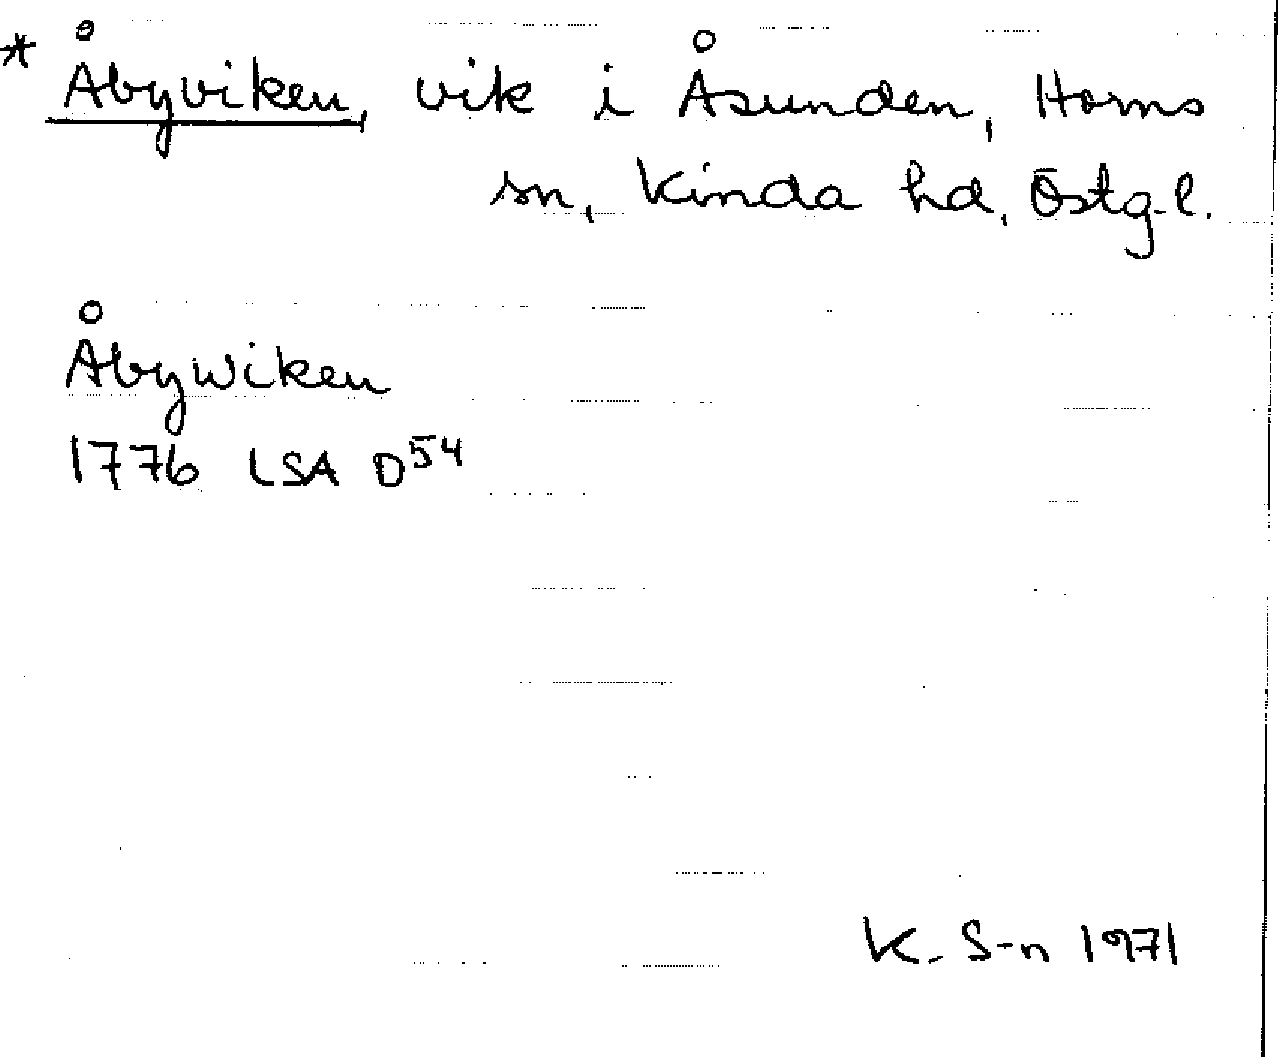 * Åbyviken, vik i Åsunden, Horns
sn, Kinda hd, Östg-l.
Åbywiken
1776 LSA D54
K. S-n 1971